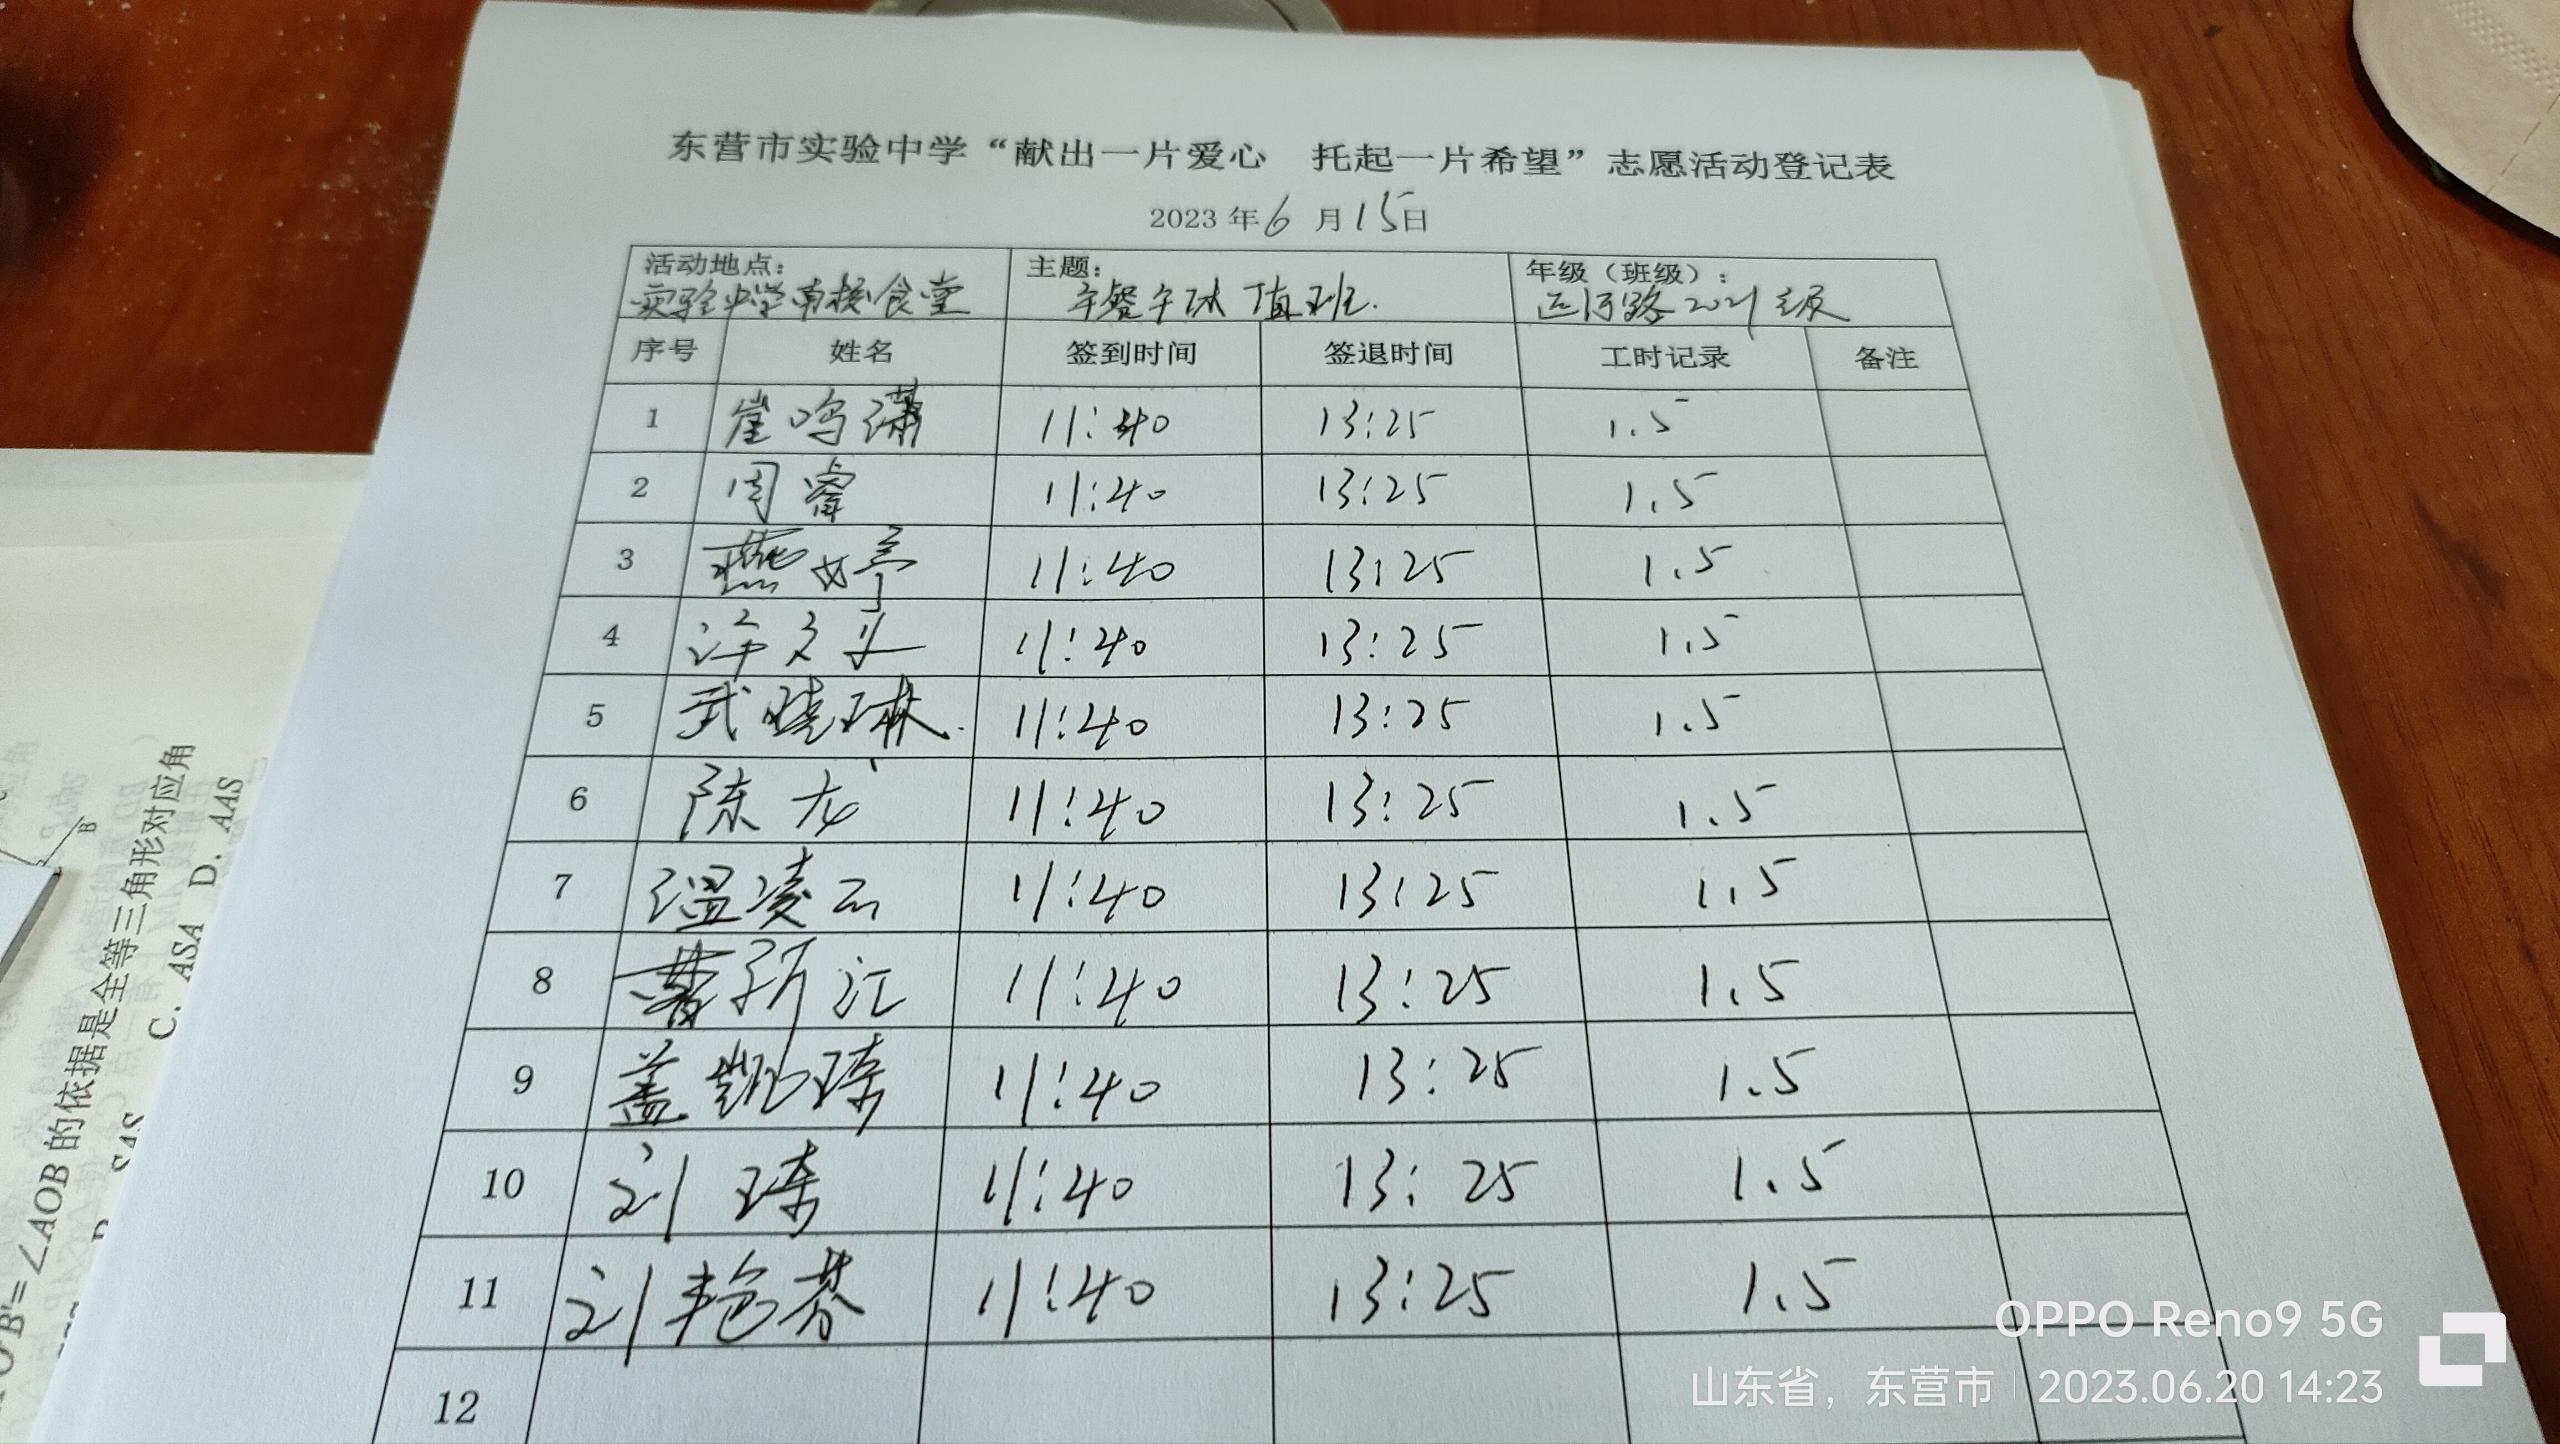 东营市实验中学“献出一片爱心 托起一片希望”志愿活动登记表
2023 年 6 月 15 日
活动地点: 主题: 年级（班级）:
实验中学南校食堂 午餐午休值班. 运河路2021级
序号 姓名 签到时间 签退时间 工时记录 备注
1 崔鸣潇 11:40 13:25 1.5
2 周睿 11:40 13:25 1.5
3 燕婷 11:40 13:25 1.5
4 许 11:40 13:25 1.5
5 武晓琳. 11:40 13:25 1.5
6 陈龙 11:40 13:25 1.5
7 温凌云 11:40 13:25 1.5
8 新江 11:40 13:25 1.5
9 盖凯琦 11:40 13:25 1.5
10 刘琦 11:40 13:25 1.5
11 刘艳芬 11:40 13:25 1.5
12
B
的依据是全等三角形对应角
C. ASA D. AAS
SAS
O'B'=∠AOB
OPPO Reno9 5G
山东省，东营市 | 2023.06.20 14:23